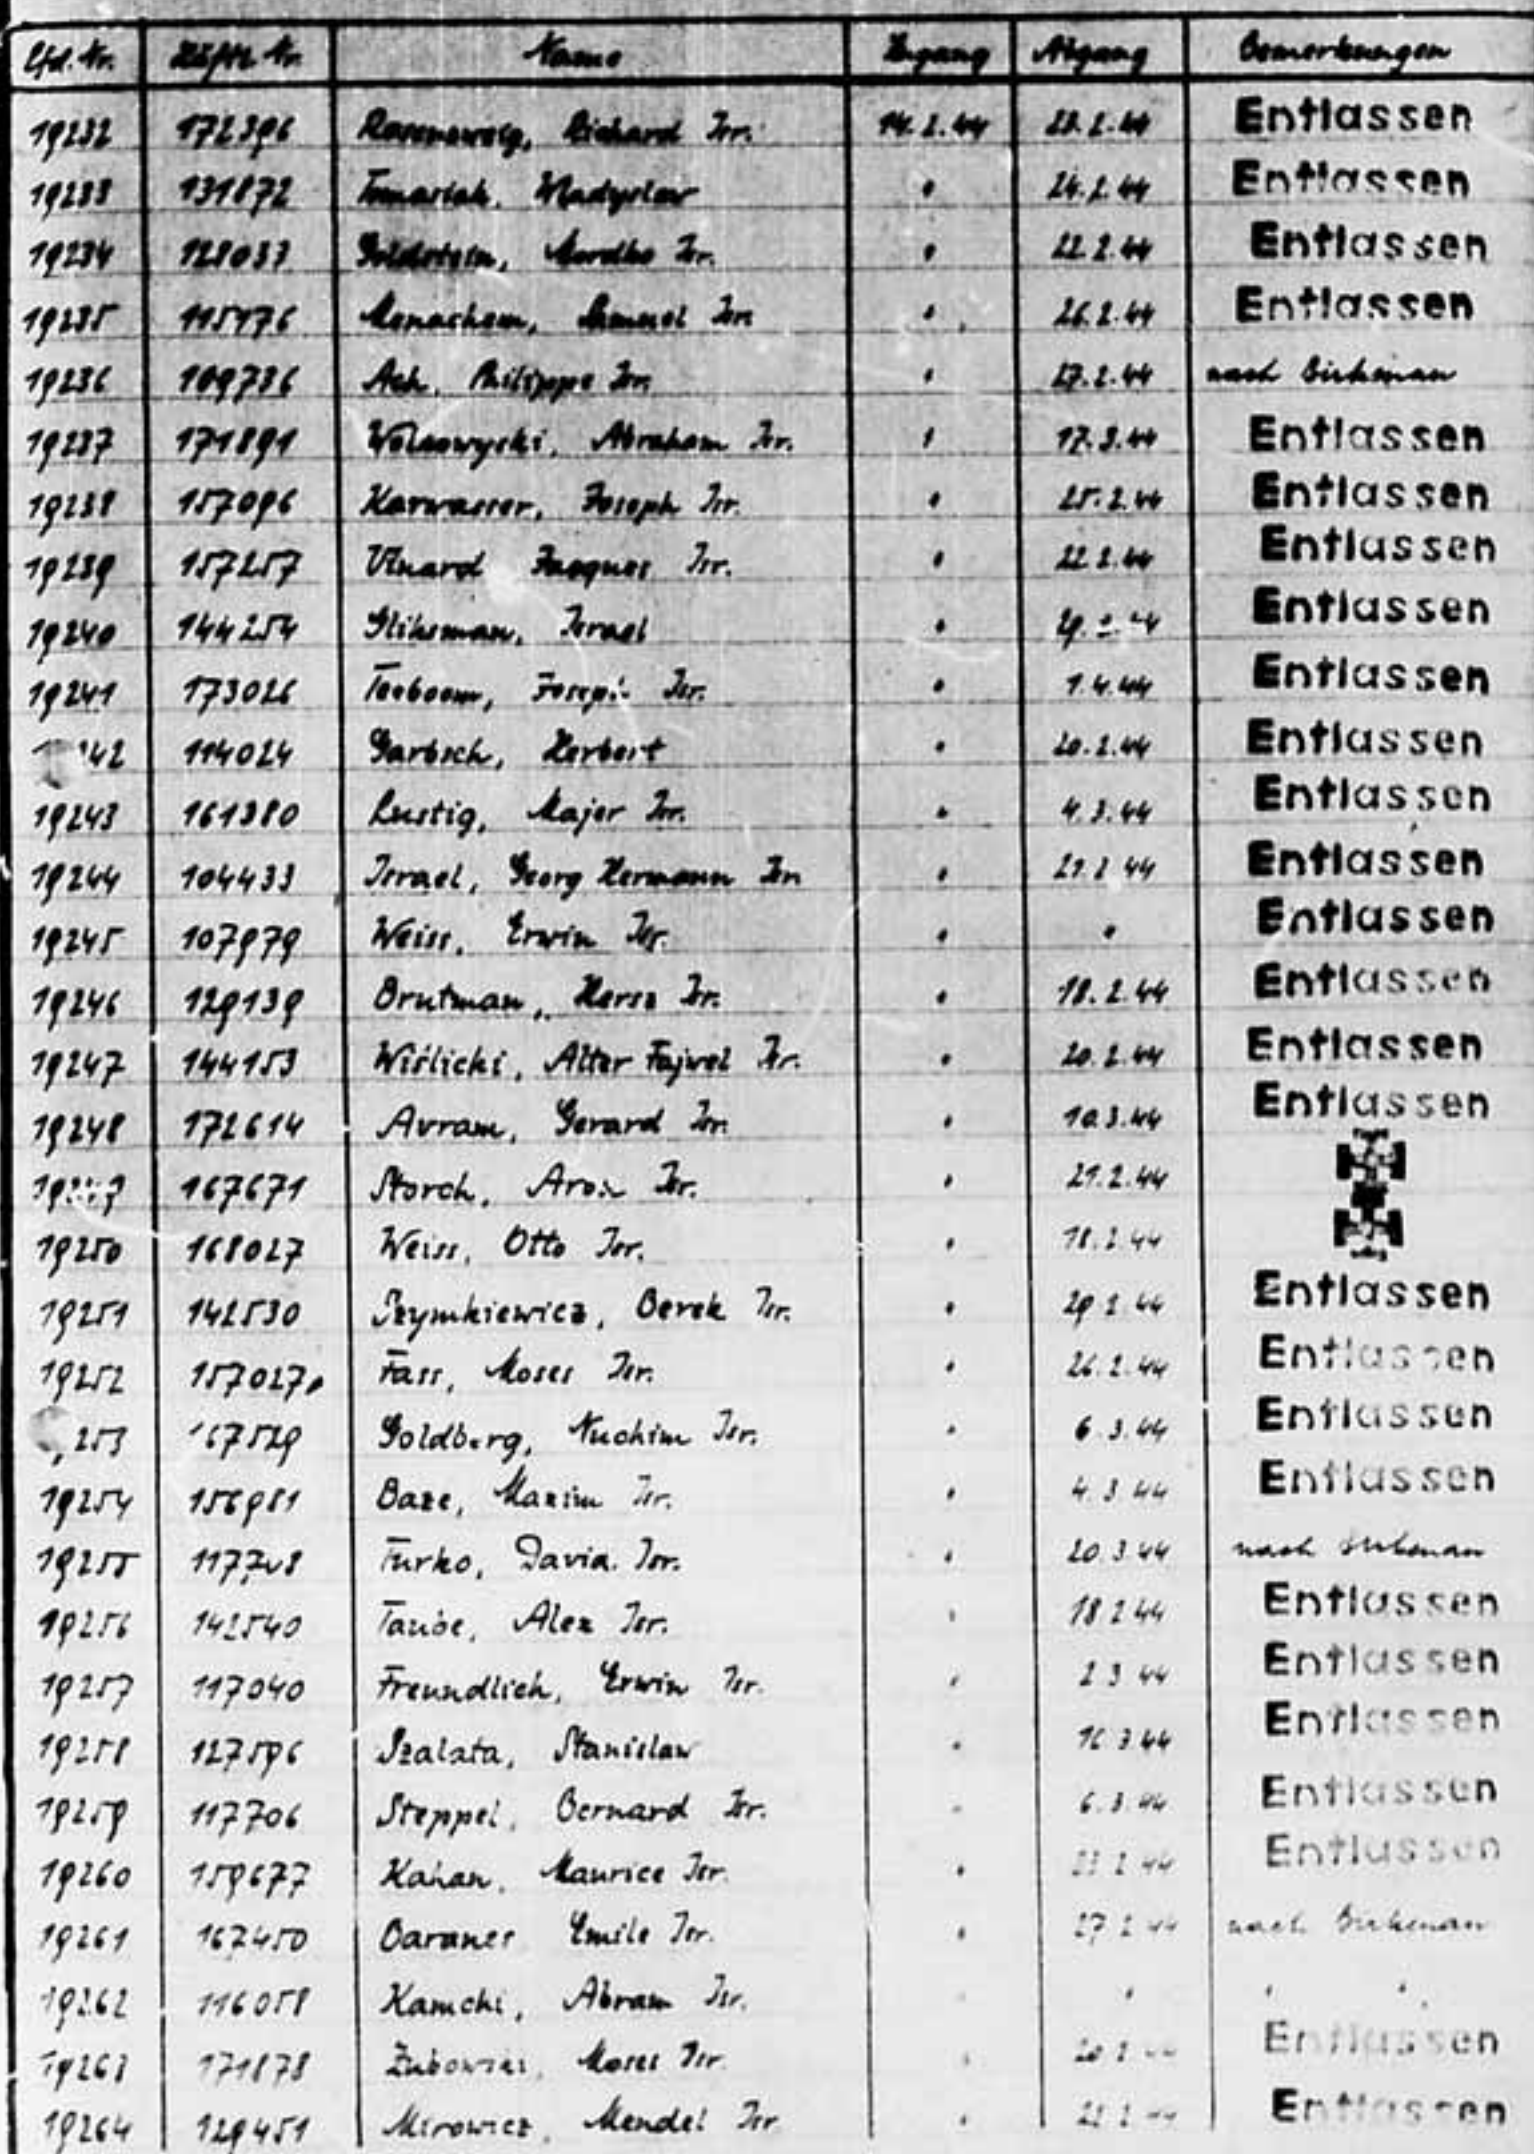 Lfd. Nr. Häftl. Nr. Name Zugang Abgang Bemerkungen
19232 172396 Richard Isr. 14.2.44 23.2.44 Entlassen
19233 131872 Wladyslaw " 24.2.44 Entlassen
19234 128033 Goldstein, Mordko Isr. " 22.2.44 Entlassen
19235 115176 Menachem, Samuel Isr. " 26.2.44 Entlassen
19236 109736 Ach, Philippe Isr. " 27.2.44 nach Birkenau
19237 171891 Wolnowycki, Abraham Isr. " 17.3.44 Entlassen
19238 157096 Karwasser, Joseph Isr. " 25.2.44 Entlassen
19239 157257 Jacques Isr. " 22.2.44 Entlassen
19240 144254 Gliksman, Israel " Entlassen
19241 173026 Teeboom, Joseph Isr. " 1.4.44 Entlassen
114024 Garbsch, Herbert " 20.2.44 Entlassen
19243 161380 Lustig, Majer Isr. " 4.3.44 Entlassen
19244 104433 Israel, Georg Hermann Isr. " 21.2.44 Entlassen
19245 107979 Weiss, Erwin Isr. " " Entlassen
19246 129139 Brutman, Hersz Isr. " 18.2.44 Entlassen
19247 144153 Wiślicki, Alter Fajwel Isr. " 20.2.44 Entlassen
19248 172614 Avram, Gerard Isr. " 10.3.44 Entlassen
167671 Storch, Aron Isr. " 21.2.44
19250 168027 Weiss, Otto Isr. " 18.2.44
19251 142530 Szymkiewicz, Berek Isr. " 29.2.44 Entlassen
19252 157027 Fass, Moses Isr. " 26.2.44 Entlassen
167529 Goldberg, Nuchim Isr. " 6.3.44 Entlassen
19254 156981 Baze, Maxim Isr. " 4.3.44 Entlassen
19255 Furko, David Isr. " 20.3.44 nach Birkenau
19256 142540 Taube, Alex Isr. " 18.2.44 Entlassen
19257 117040 Freundlich, Erwin Isr. " 2.3.44 Entlassen
19258 127596 Szalata, Stanislaw " 16.3.44 Entlassen
19259 117706 Steppel, Bernard Isr. " 6.3.44 Entlassen
19260 159677 Kahan, Maurice Isr. " 23.2.44 Entlassen
19261 167450 Baranes Emile Isr. " 27.2.44 nach Birkenau
19262 116058 Kamchi, Abram Isr. " " " "
19263 171878 Moses Isr. " Entlassen
19264 129451 Mirowicz, Mendel Isr. " Entlassen